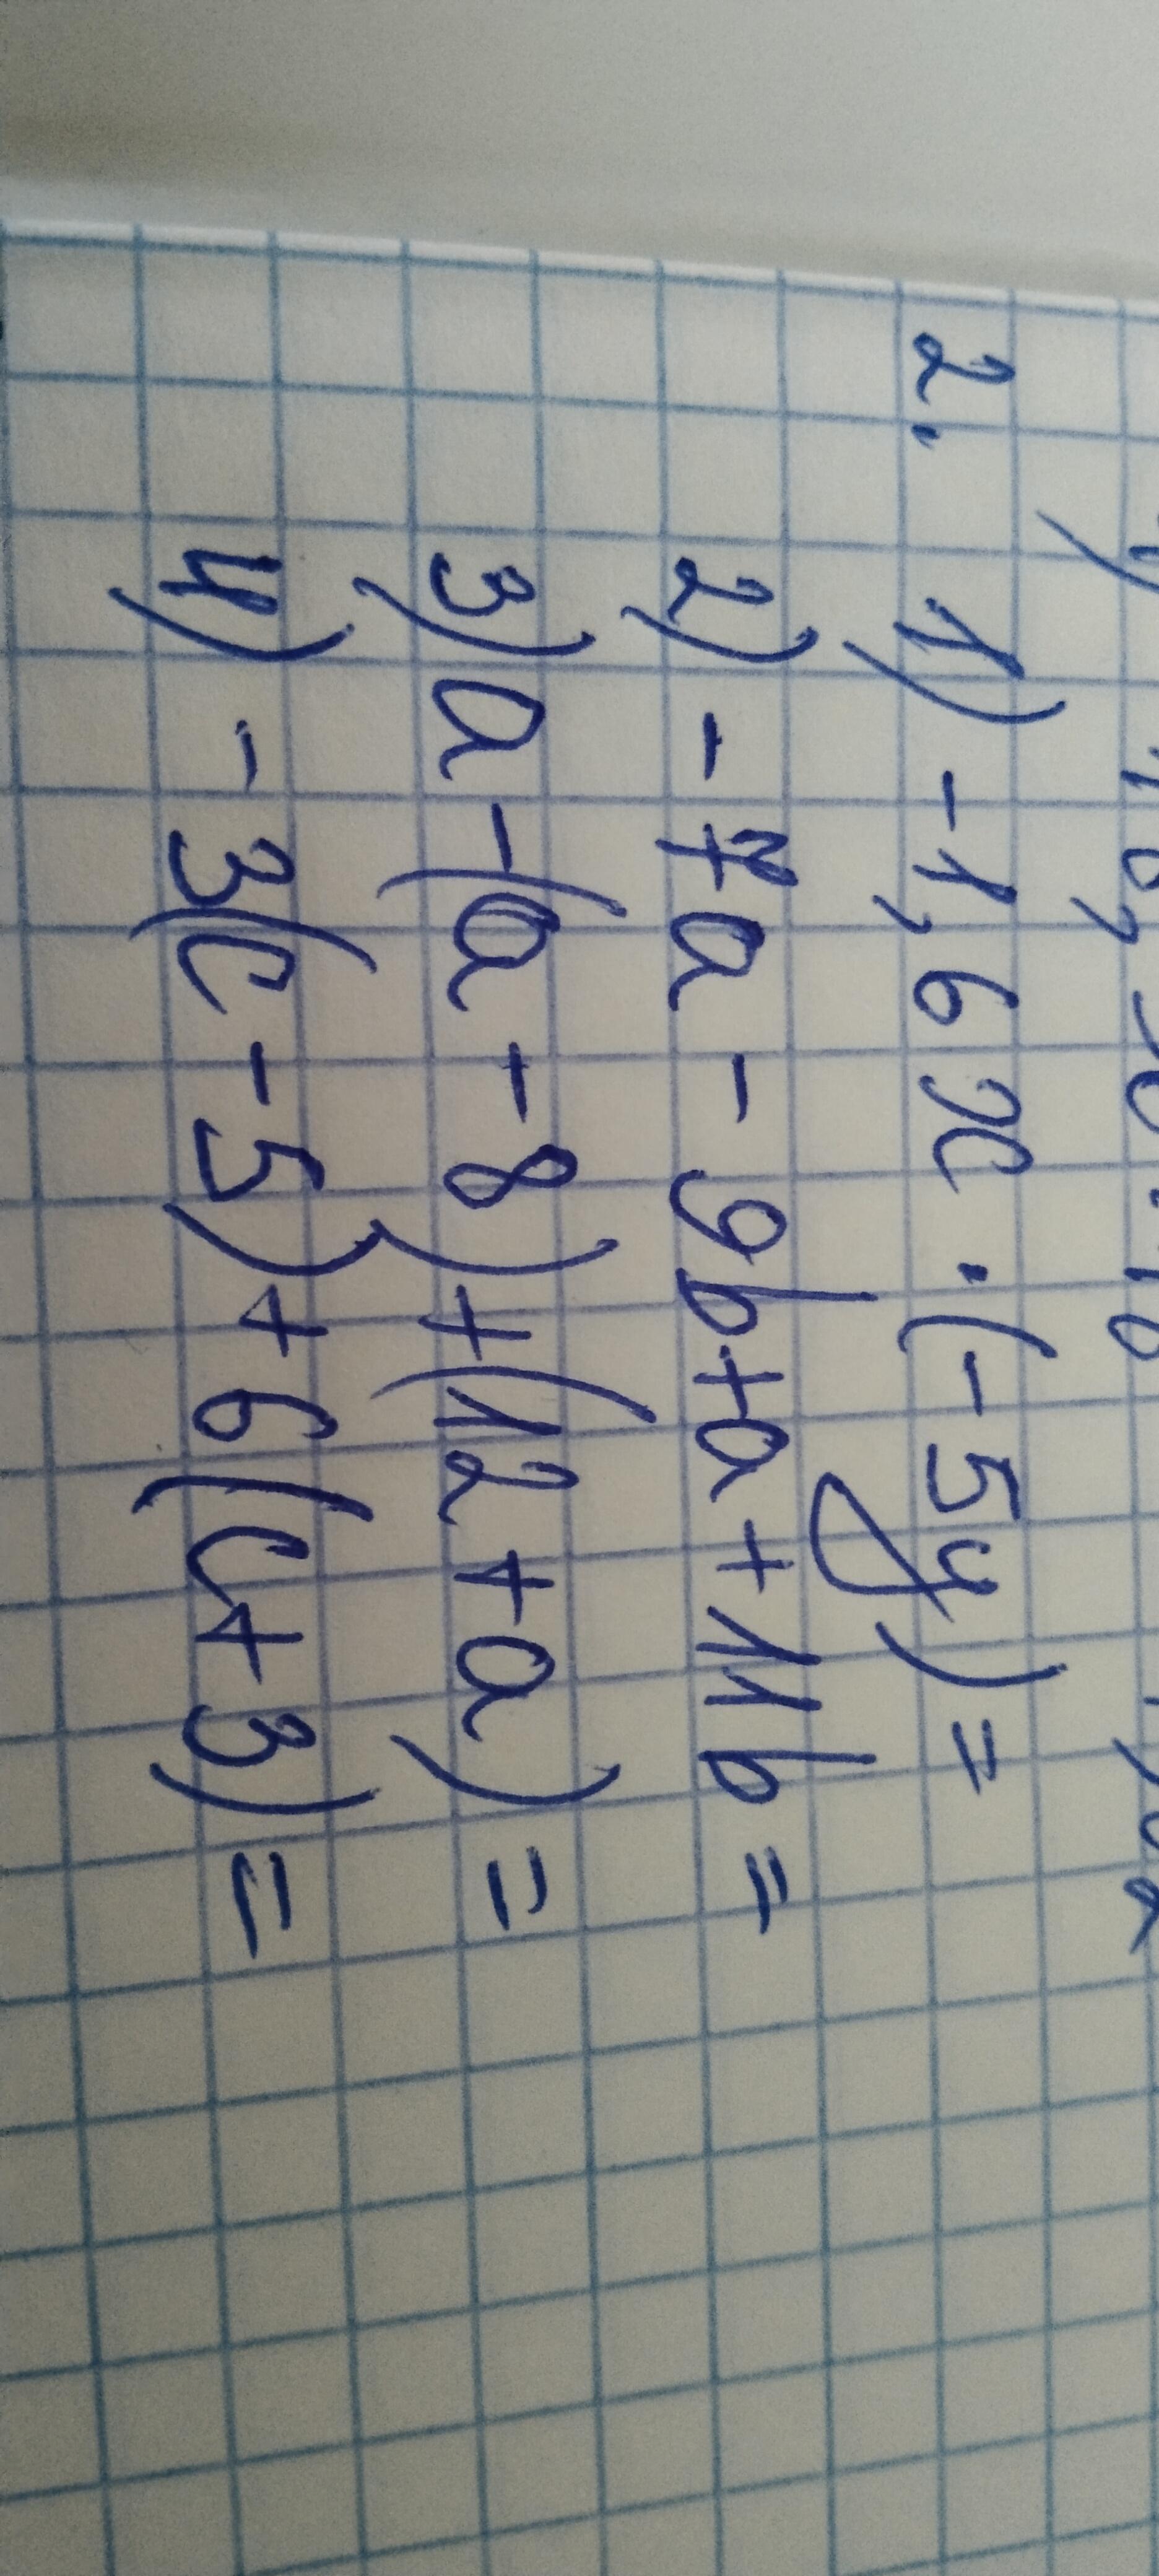 2. 1) -1,6x·(-5y)=
2) -7a-9b+a+11b=
3) a-(a-8)+(12+a)=
4) -3(c-5)+6(c+3)=